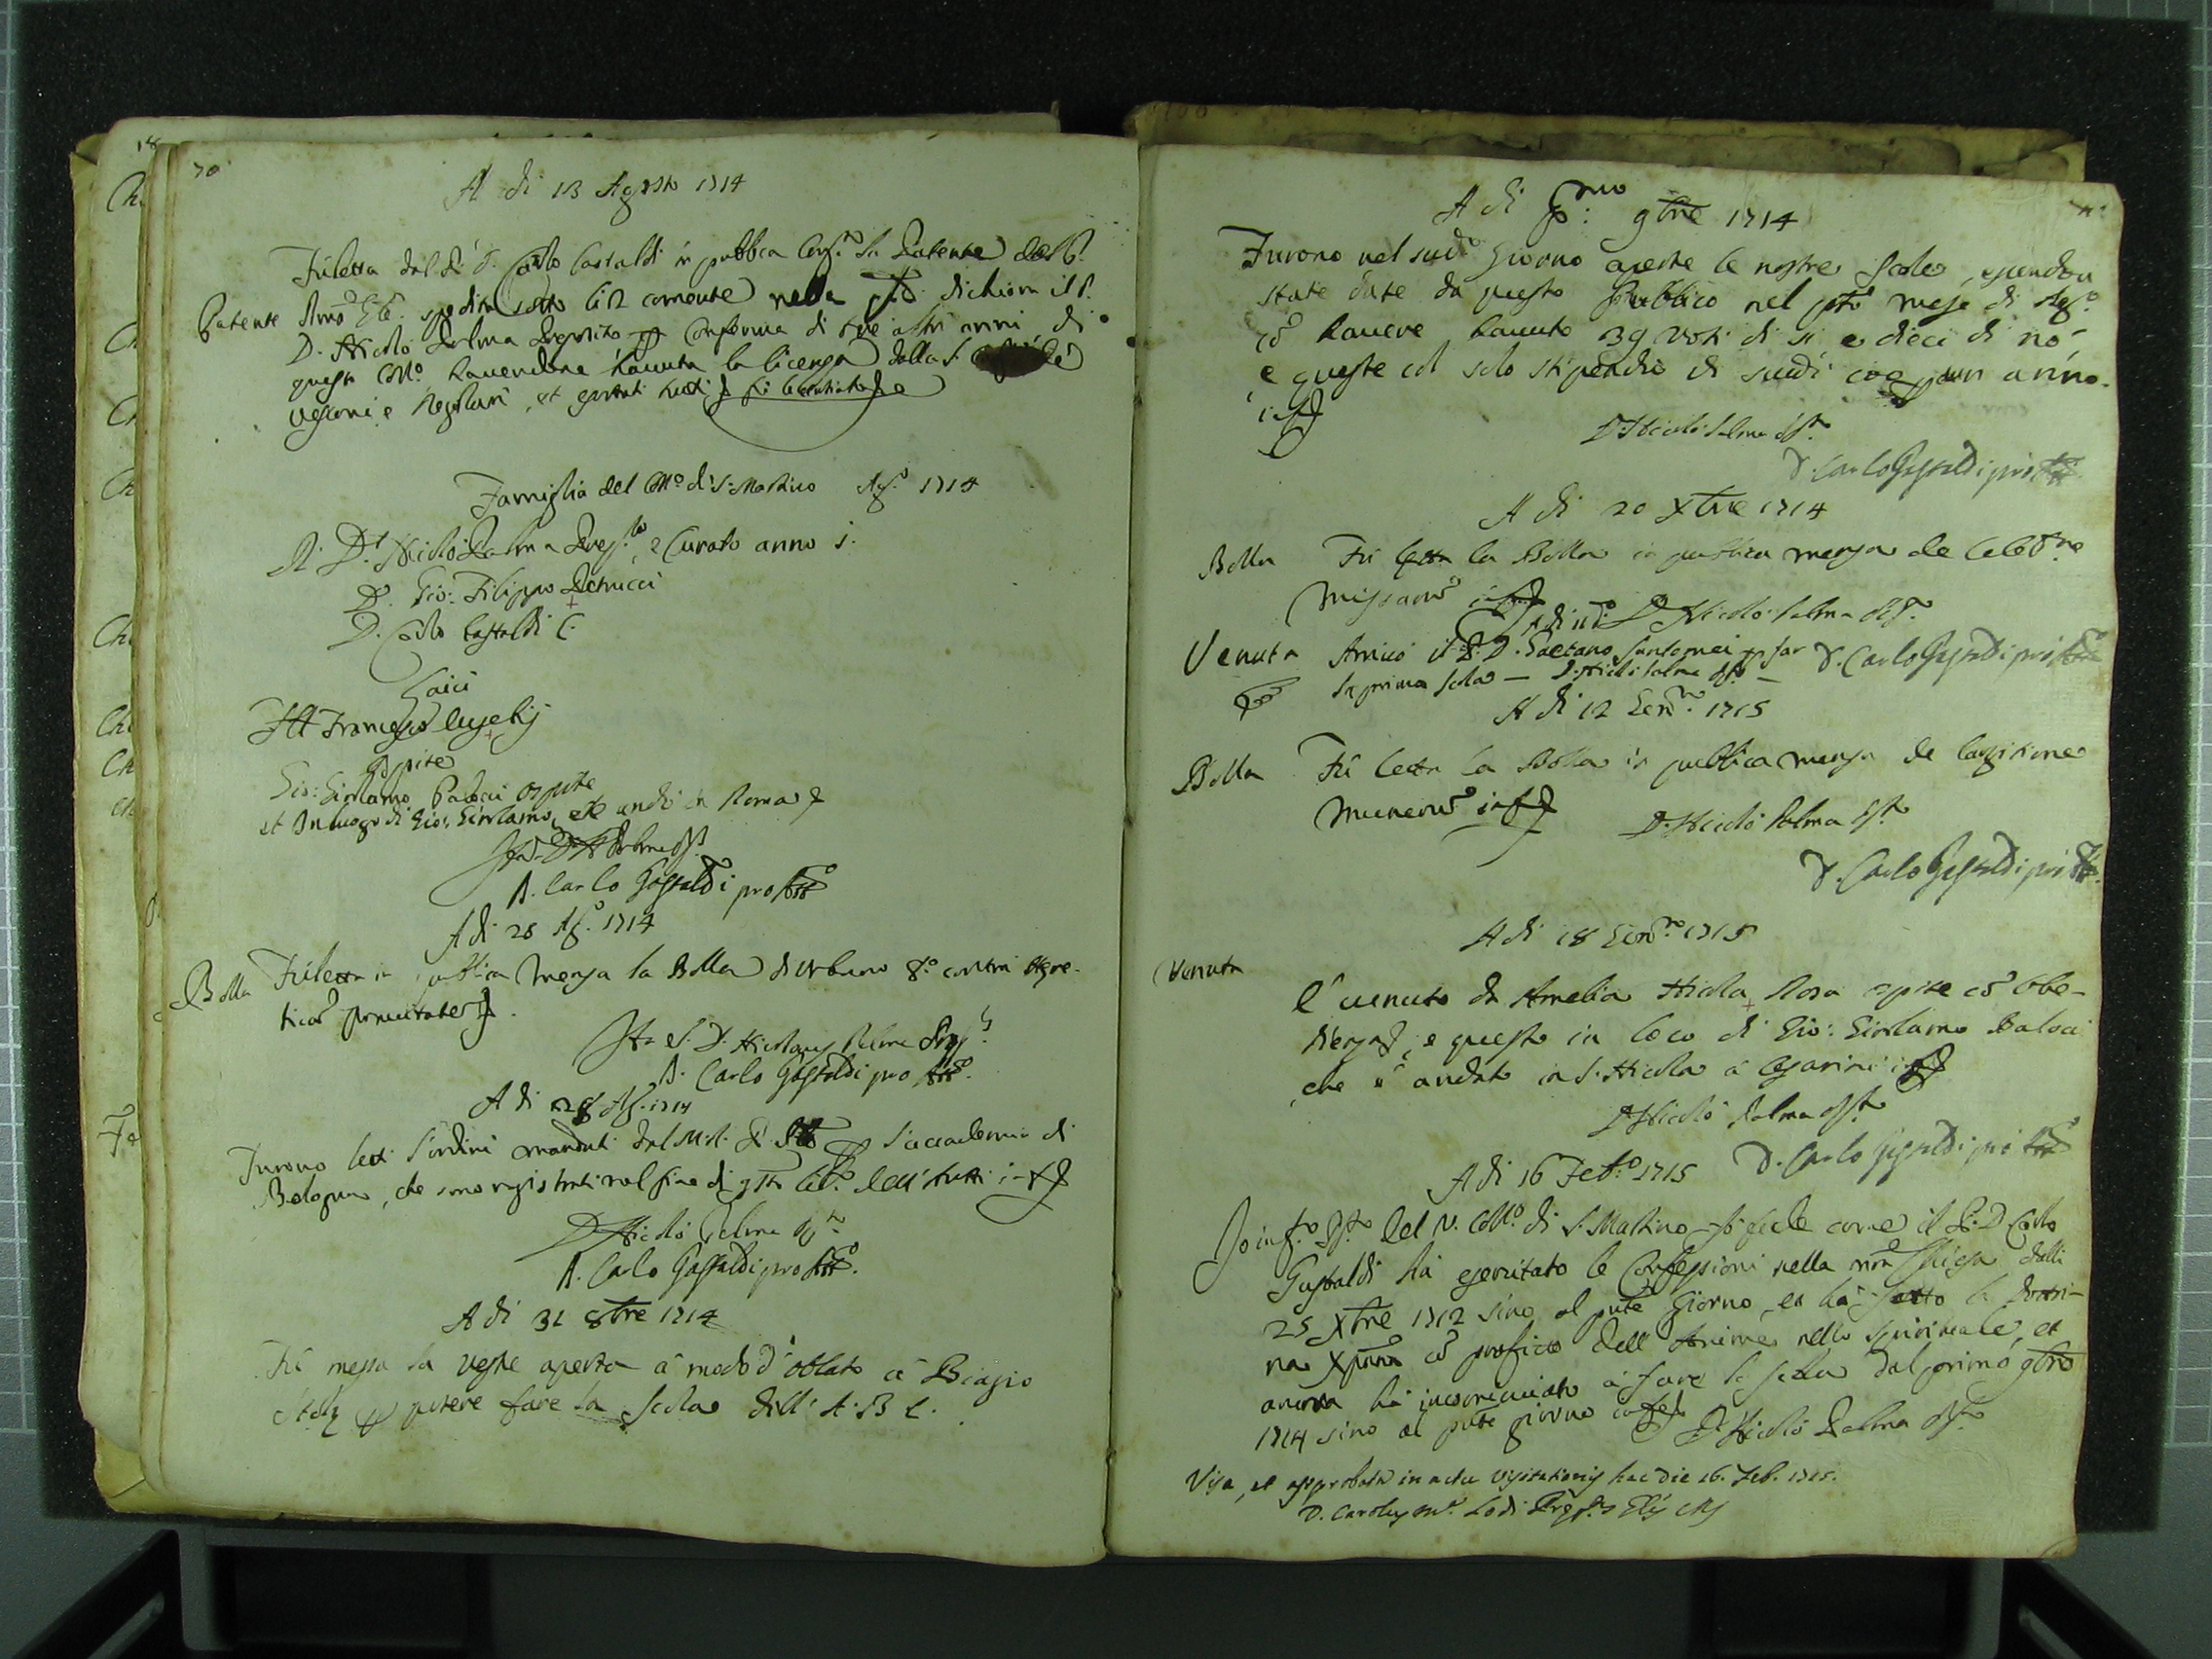 70
A di 13 Agosto 1714
Fù letta dal P. D. Carlo Gastaldi in publica Cong. la Patente del P.
Patente Rmo Gle. spedita sotto li 2 corrente nella dichiara il P.
D. Nicolò Palma Preposito conferma di tre altri anni di
questo Collo. havendone havuta la licenza dalla S.
Vescovi e Regolari, et gustati tutti
Famiglia del Collo. di S. Martino Ago. 1714
Il P. D. Nicolò Palma Prepto., e Curato anno 1.
D. Gio: Filippo Petrucci
D. Carlo Gastaldi C.
Laici
Francesco
Ospite
Gio: Girolamo Paloci ospite
et in luogo di Gio: Girolamo, che andò in Roma
D. Carlo Gastaldi pro Atto
A di 28 Ag. 1714
Bolla Fù letta in publica Mensa la Bolla di Urbano 8.o contra Here-
ticos
D. Nicolaus Palma Prep.s
D. Carlo Gastaldi pro Atto
A di 28 Ag. 1714
Furono letti l'ordini mandati dal M. R. P. l'accademia di
Bologna, che sono registrati nel fine di libro
D. Nicolò Palma
D. Carlo Gastaldi pro Atto
A di 31 8bre 1714
Fù messa la veste aperta à modo d'oblato à Biagio
potere fare la scola dell' A. B. C.
A di Pmo: 9bre 1714
Furono nel sud.o Giorno aperte le nostre Scole, essendou
state date da questo Pubblico nel mese di
cõ havere havuto 39 voti di si e dieci di nò,
e queste col solo stipendio di scudi un anno.
D. Nicolò Palma
D. Carlo Gastaldi pro Atto
A di 20 Xbre 1714
Bolla Fù letta la Bolla in publica mensa de Celebne
Missarum
A di D. Nicolò Palma
Venuta Arrivò il P. D. Gaetano Santomei far D. Carlo Gastaldi pro Atto
la prima scola — D. Nicolò Palma —
A di 12 Genro. 1715
Bolla Fù letta la Bolla in publica mensa de largitione
Munerum
D. Nicolò Palma
D. Carlo Gastaldi pro Atto
A di 18 Genro. 1715
Venuta
È venuto da Amelia Nicola Rosa ospite cõ obe-
dienza, e questo in loco di Gio: Girolamo Paloci
che è andato in S. Nicola à Cesarini
D. Nicolò Palma
A di 16 Feb.o 1715 D. Carlo Gastaldi pro Atto
Io inf.o del V. Collo. di S. Martino fò fede come il P. D. Carlo
Gastaldi hà esercitato le Confessioni nella nra Chiesa dalli
25 Xbre 1712 sino al pnte Giorno, et hà fatto la dottri-
na Xpiana cõ profitto dell' Anime nello spirituale, et
ancora hà incominciato à fare la scola dal primo 9bre
1714 sino al pnte giorno
D. Nicolò Palma
Visa, et approbata in actu visitationis hac die 16. Feb. 1715.
D. Carolus Ma. Lodi